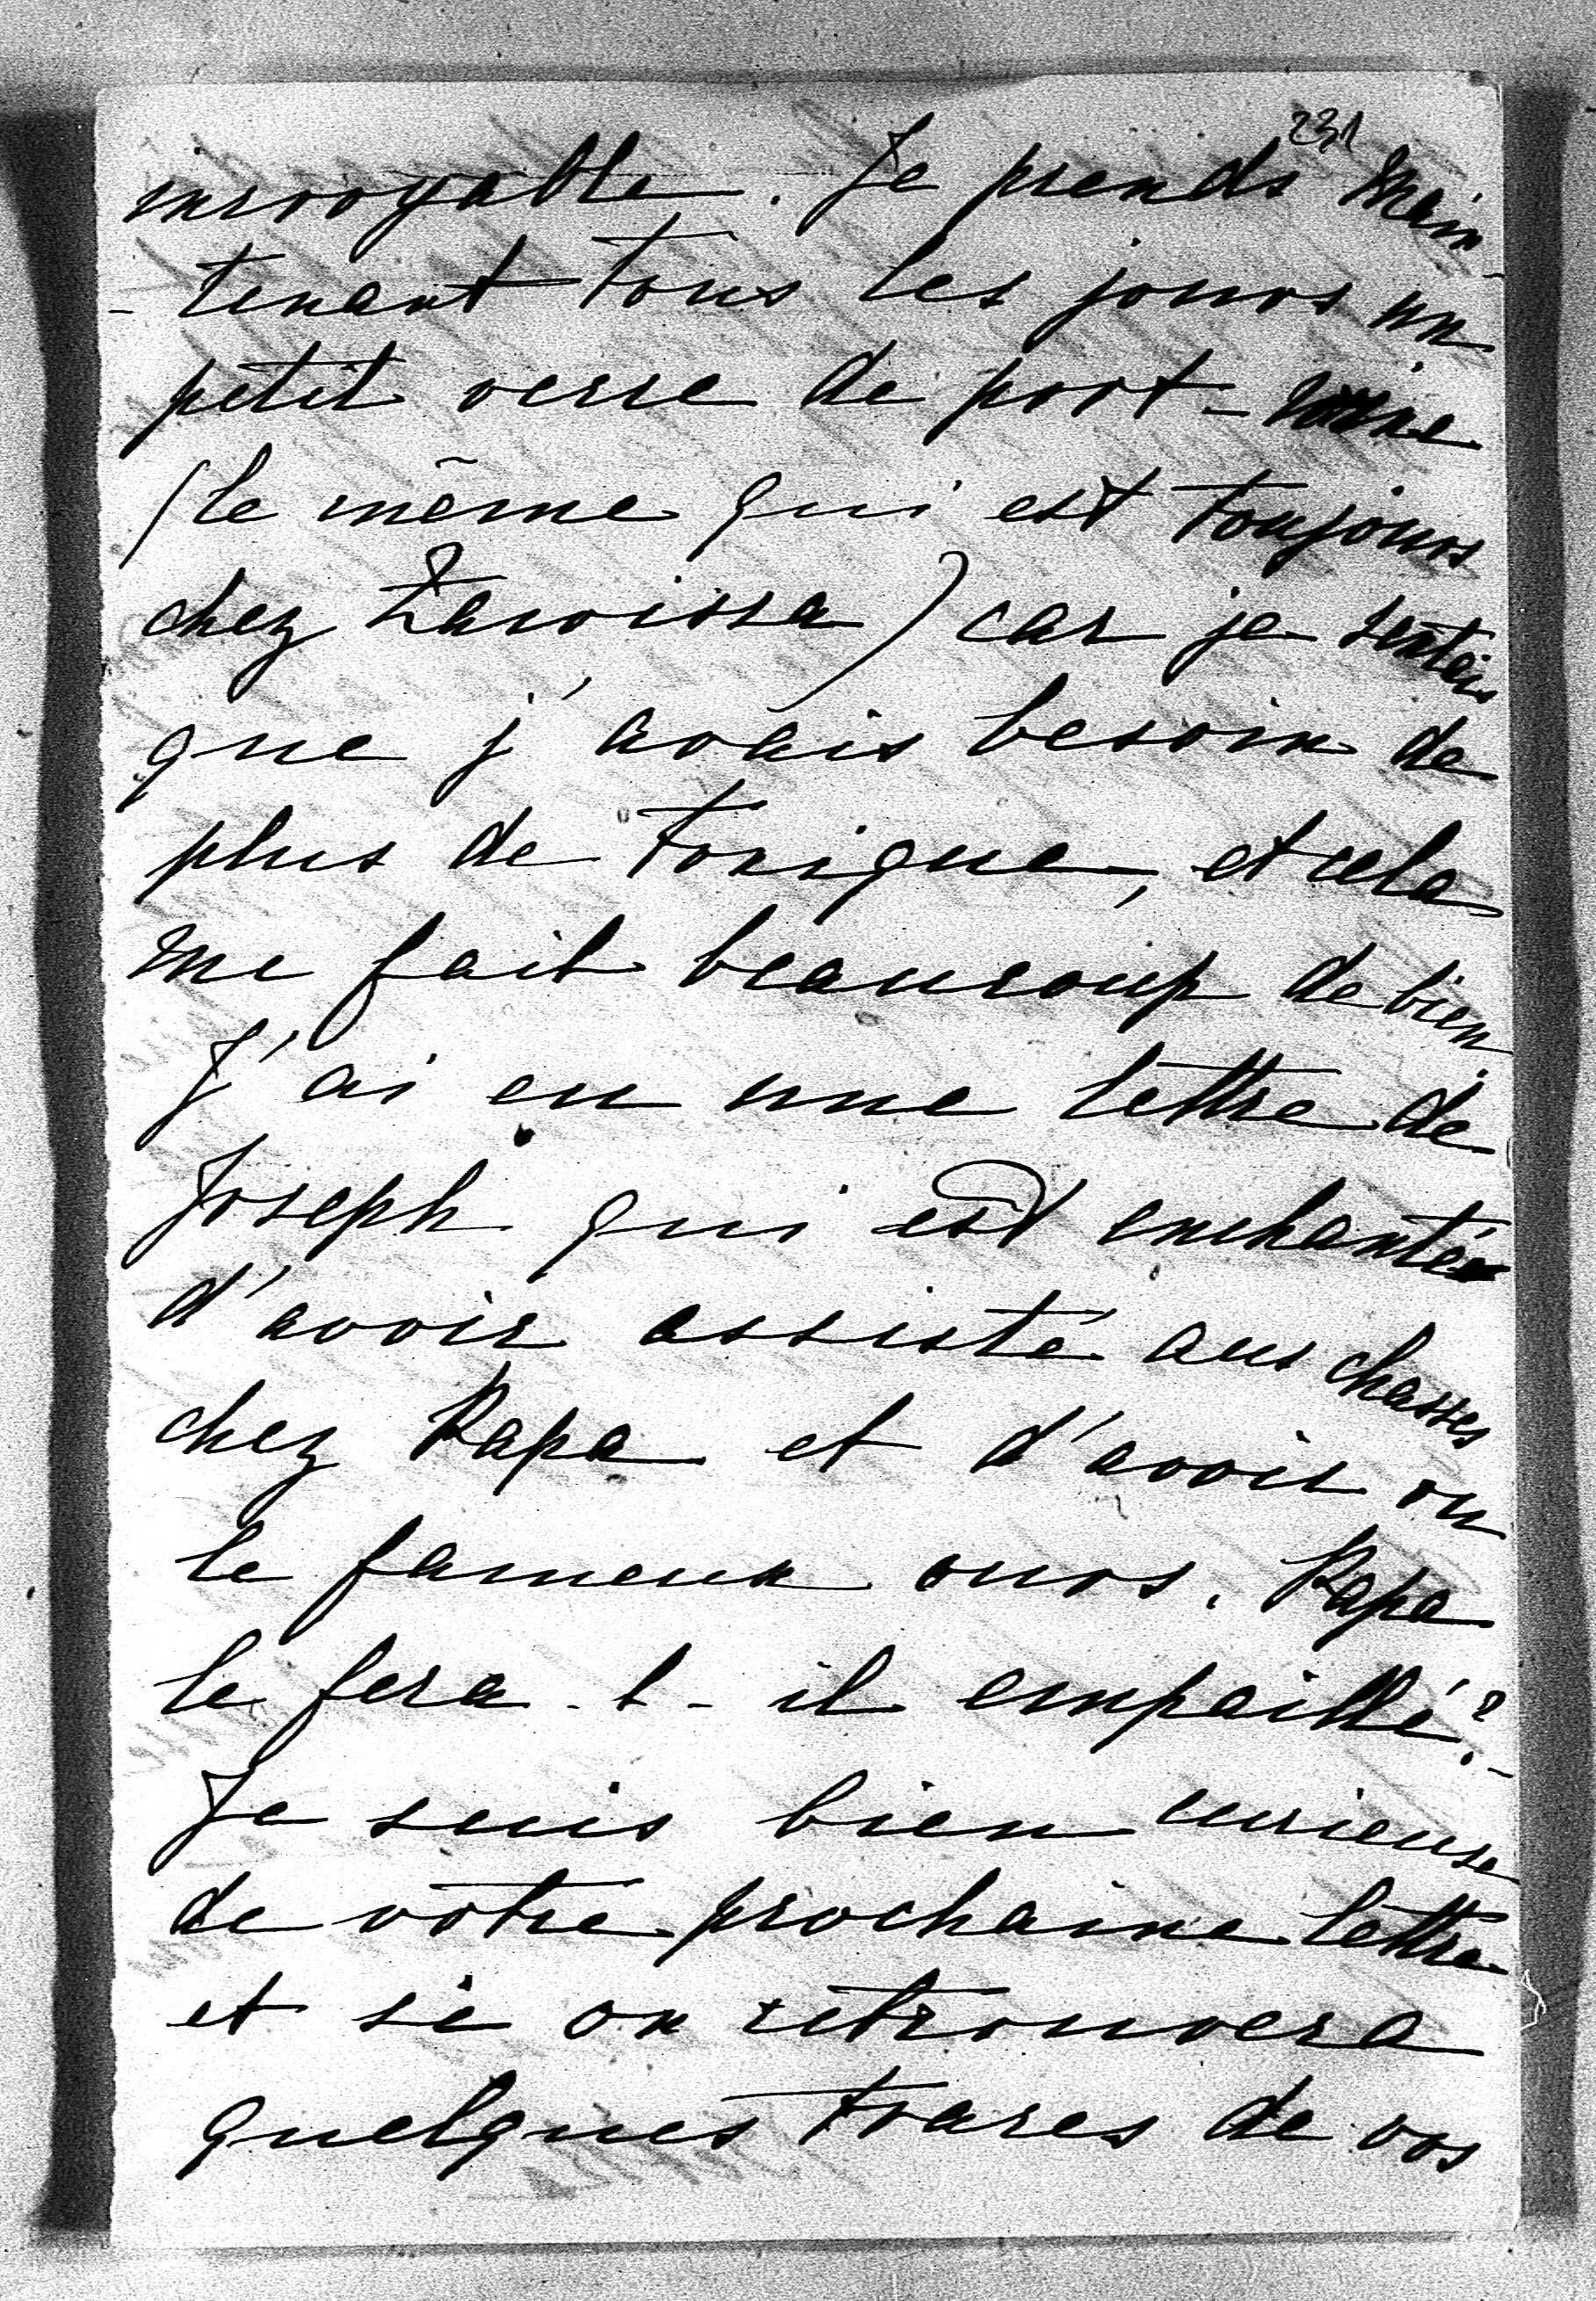 231
incroyable. Je prends main-
-tenant tous les jours un
petit verre de port-wine
(le même qui est toujours
chez Zaroissa) car je sentais
que j'avais besoin de
plus de tonique, et cela
me fait beaucoup de bien.
J'ai eu une lettre de
Joseph qui est enchanté
d'avoir assisté aux chasses
chez Papa et d'avoir vu
le fameux ours. Papa
le fera-t-il empaillé?-
Je suis bien curieuse
de votre prochaine lettre
et si on retrouvera
quelques traces de vos